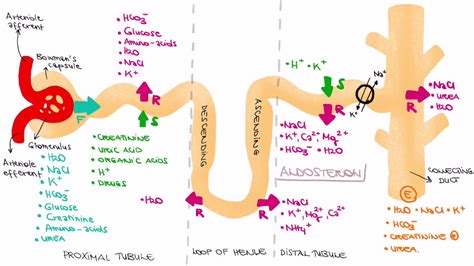 Arteriole
afferent
Bowman's
capsule
Glomerulus
Arteriole
efferent
F
• H2O
• NaCl
• K+
• HCO3-
• Glucose
• Creatinine
• Amino-acids
• UREA
• HCO3-
• Glucose
• Amino-acids
• H2O
• NaCl
• K+
R
S
• CREATININE
• URIC ACID
• ORGANIC ACIDS
• H+
• DRUGS
• H2O
R
DESCENDING
ASCENDING
R
• NaCl
• K+, Mg2+, Ca2+
• NH4+
• H+ • K+
S
R
• NaCl
• K+, Ca2+, Mg2+
• HCO3-
• H2O
ALDOSTERON
Na+
K+
R
• NaCl
• UREA
• H2O
COLLECTING
DUCT
E
• H2O • NaCl • K+
• HCO3-
• CREATININE
• UREA
PROXIMAL TUBULE
LOOP OF HENLE
DISTAL TUBULE